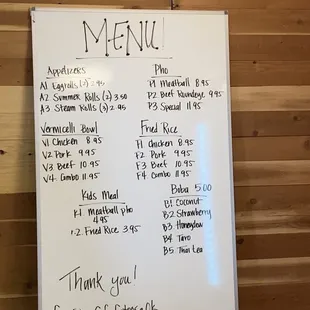 MENU
Appetizers
A1 Eggrolls (2) 2.95
A2 Summer Rolls (2) 3.50
A3 Steam Rolls (3) 2.95
Pho
P1 Meatball 8.95
P2 Beef Roundeye 9.95
P3 Special 11.95
Vermicelli Bowl
V1 Chicken 8.95
V2 Pork 9.95
V3 Beef 10.95
V4 Combo 11.95
Fried Rice
F1 Chicken 8.95
F2 Pork 9.95
F3 Beef 10.95
F4 Combo 11.95
Kids Meal
K1 Meatball pho
4.95
K2 Fried Rice 3.95
Boba 5.00
B1 Coconut
B2 Strawberry
B3 Honeydew
B4 Taro
B5 Thai tea
Thank you!